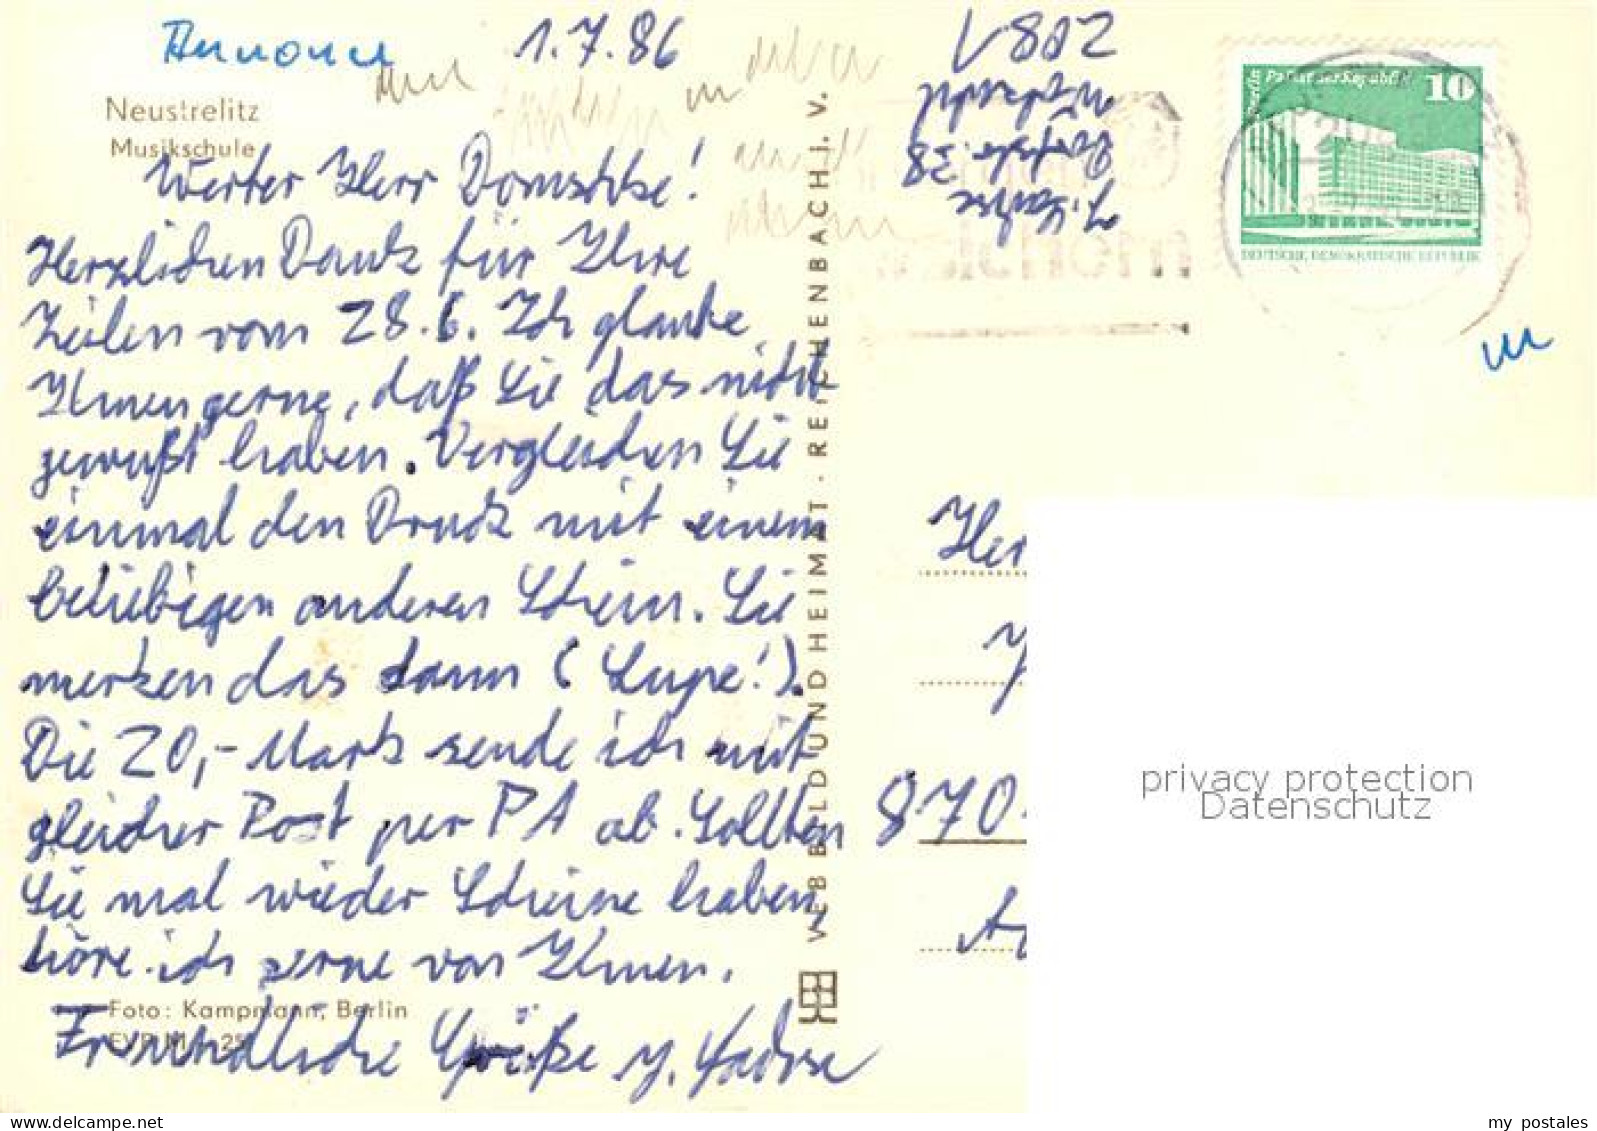 Annonce
1.7.86
Neustrelitz
Musikschule
Werter Herr
Herzlichen Dank für Ihre
Zeilen vom 28.6. Ich glaube
Ihnen gerne, daß Sie das nicht
gewußt haben. Vergleichen Sie
einmal den Druck mit einem
beliebigen anderen Schein. Sie
merken das dann (Lupe!).
Die 20,- Mark sende ich mit
gleicher Post per PA ab. Sollten
Sie mal wieder Scheine haben,
höre ich gerne von Ihnen.
Foto: Kampmann, Berlin
EVP M
Freundliche Grüße
VEB BILD UND HEIMAT · REICHENBACH i. V.
Dorfstr. 38
Berlin Palast der Republik
10
DEUTSCHE DEMOKRATISCHE REPUBLIK
Her
870
privacy protection
Datenschutz
my postales